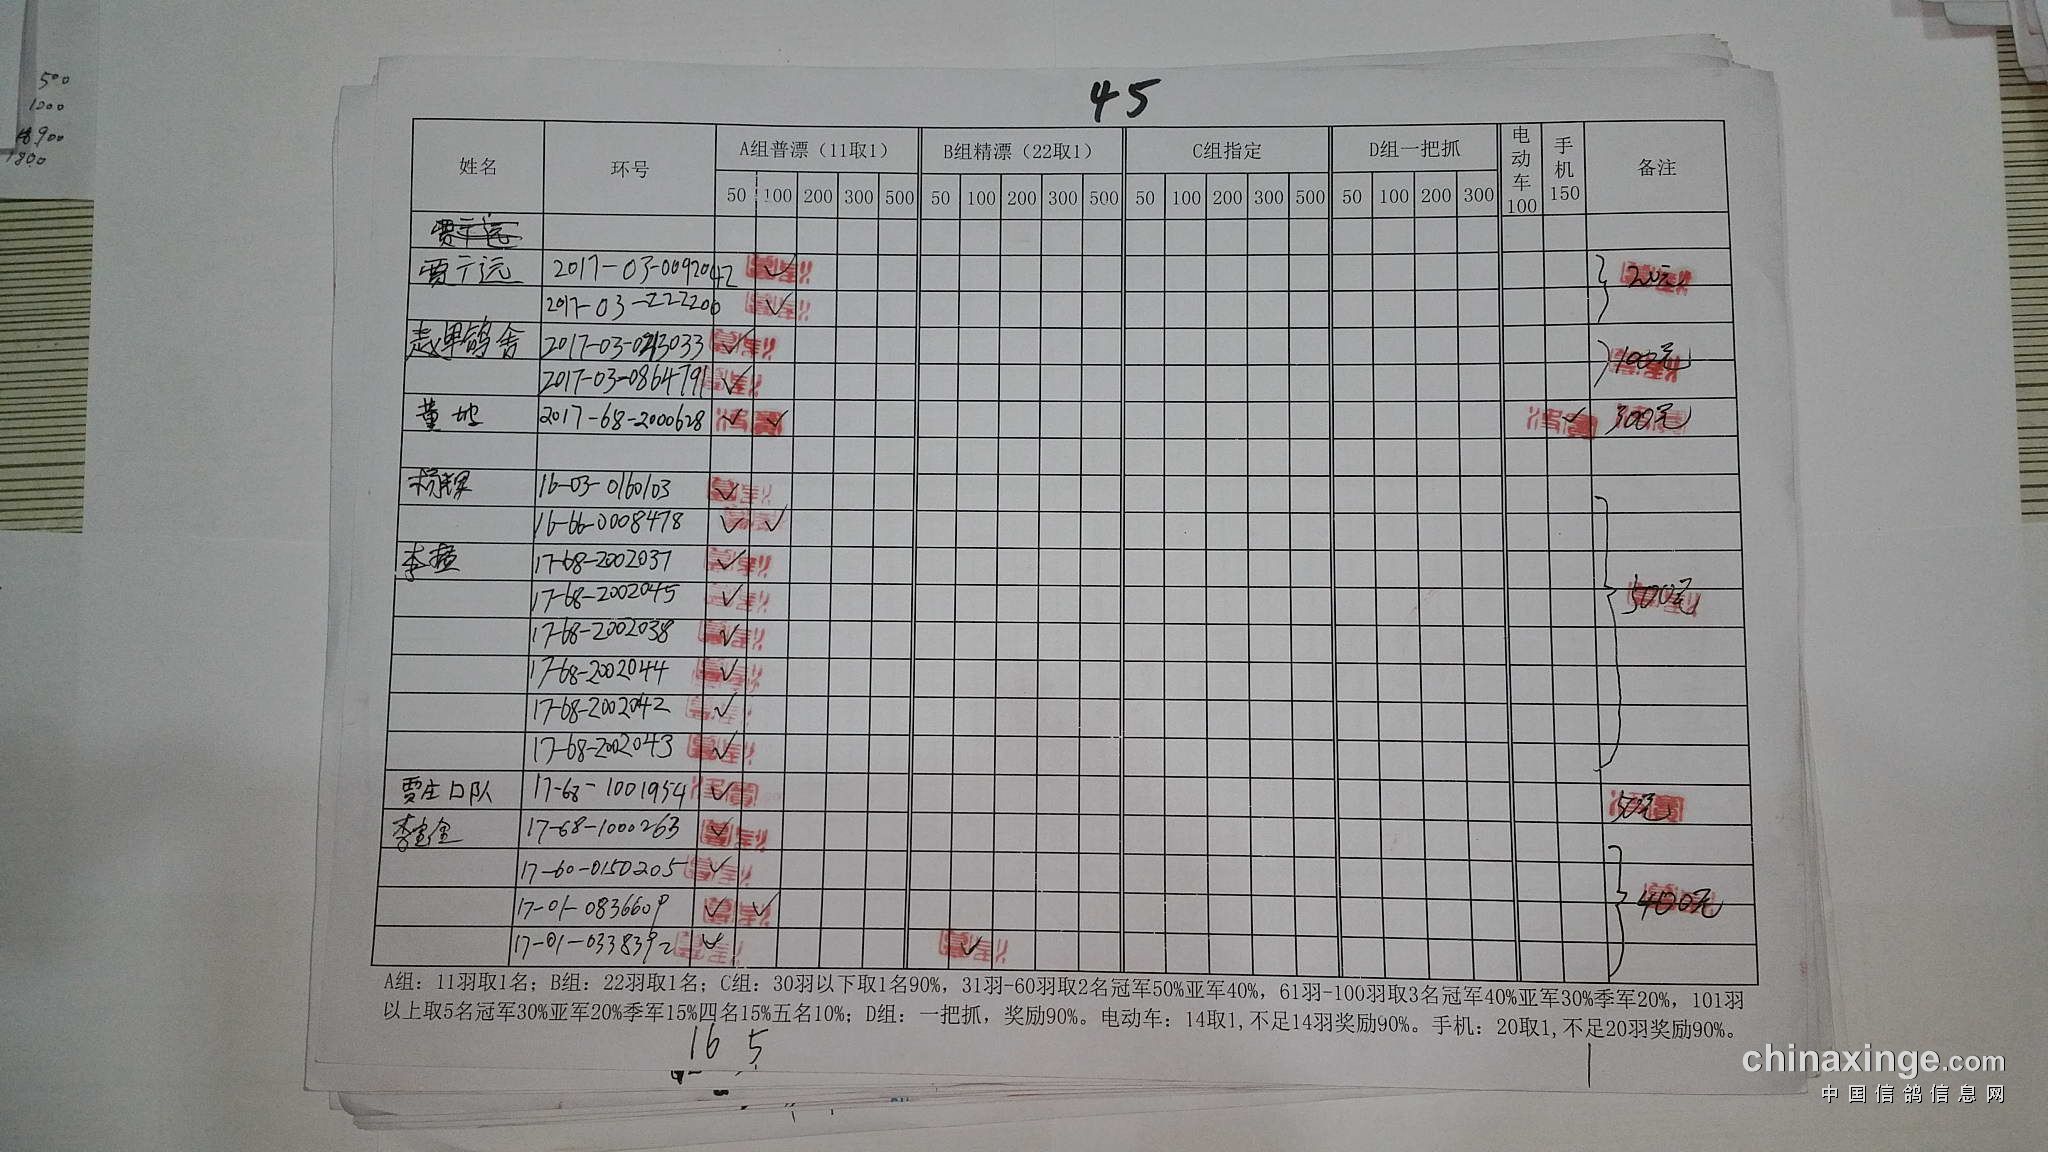 500
1200
1800
45
姓名 环号 A组普漂（11取1） B组精漂（22取1） C组指定 D组一把抓 电动车100 手机150 备注
50 100 200 300 500 50 100 200 300 500 50 100 200 300 500 50 100 200 300
贾于远 2017-03-0092042 ✓ 200元
2017-03-222206 ✓
鸽舍 2017-03-0243033 ✓ 100元
2017-03-0864791 ✓
董地 2017-68-2000628 ✓ ✓ ✓ 300元
16-03-0160103 ✓
16-66-0008478 ✓ ✓
17-68-2002037 ✓
17-68-2002045 ✓ 500元
17-68-2002038 ✓
17-68-2002044 ✓
17-68-2002042 ✓
17-68-2002043 ✓
贾庄口队 17-68-1001954 ✓ 50元
李宝金 17-68-1000263 ✓
17-60-0150205 ✓
17-01-0836609 ✓ ✓ 400元
17-01-0338392 ✓ ✓
A组：11羽取1名；B组：22羽取1名；C组：30羽以下取1名90%，31羽-60羽取2名冠军50%亚军40%，61羽-100羽取3名冠军40%亚军30%季军20%，101羽
以上取5名冠军30%亚军20%季军15%四名15%五名10%；D组：一把抓，奖励90%。电动车：14取1,不足14羽奖励90%。手机：20取1,不足20羽奖励90%。
16 5 1
chinaxinge.com
中国信鸽信息网